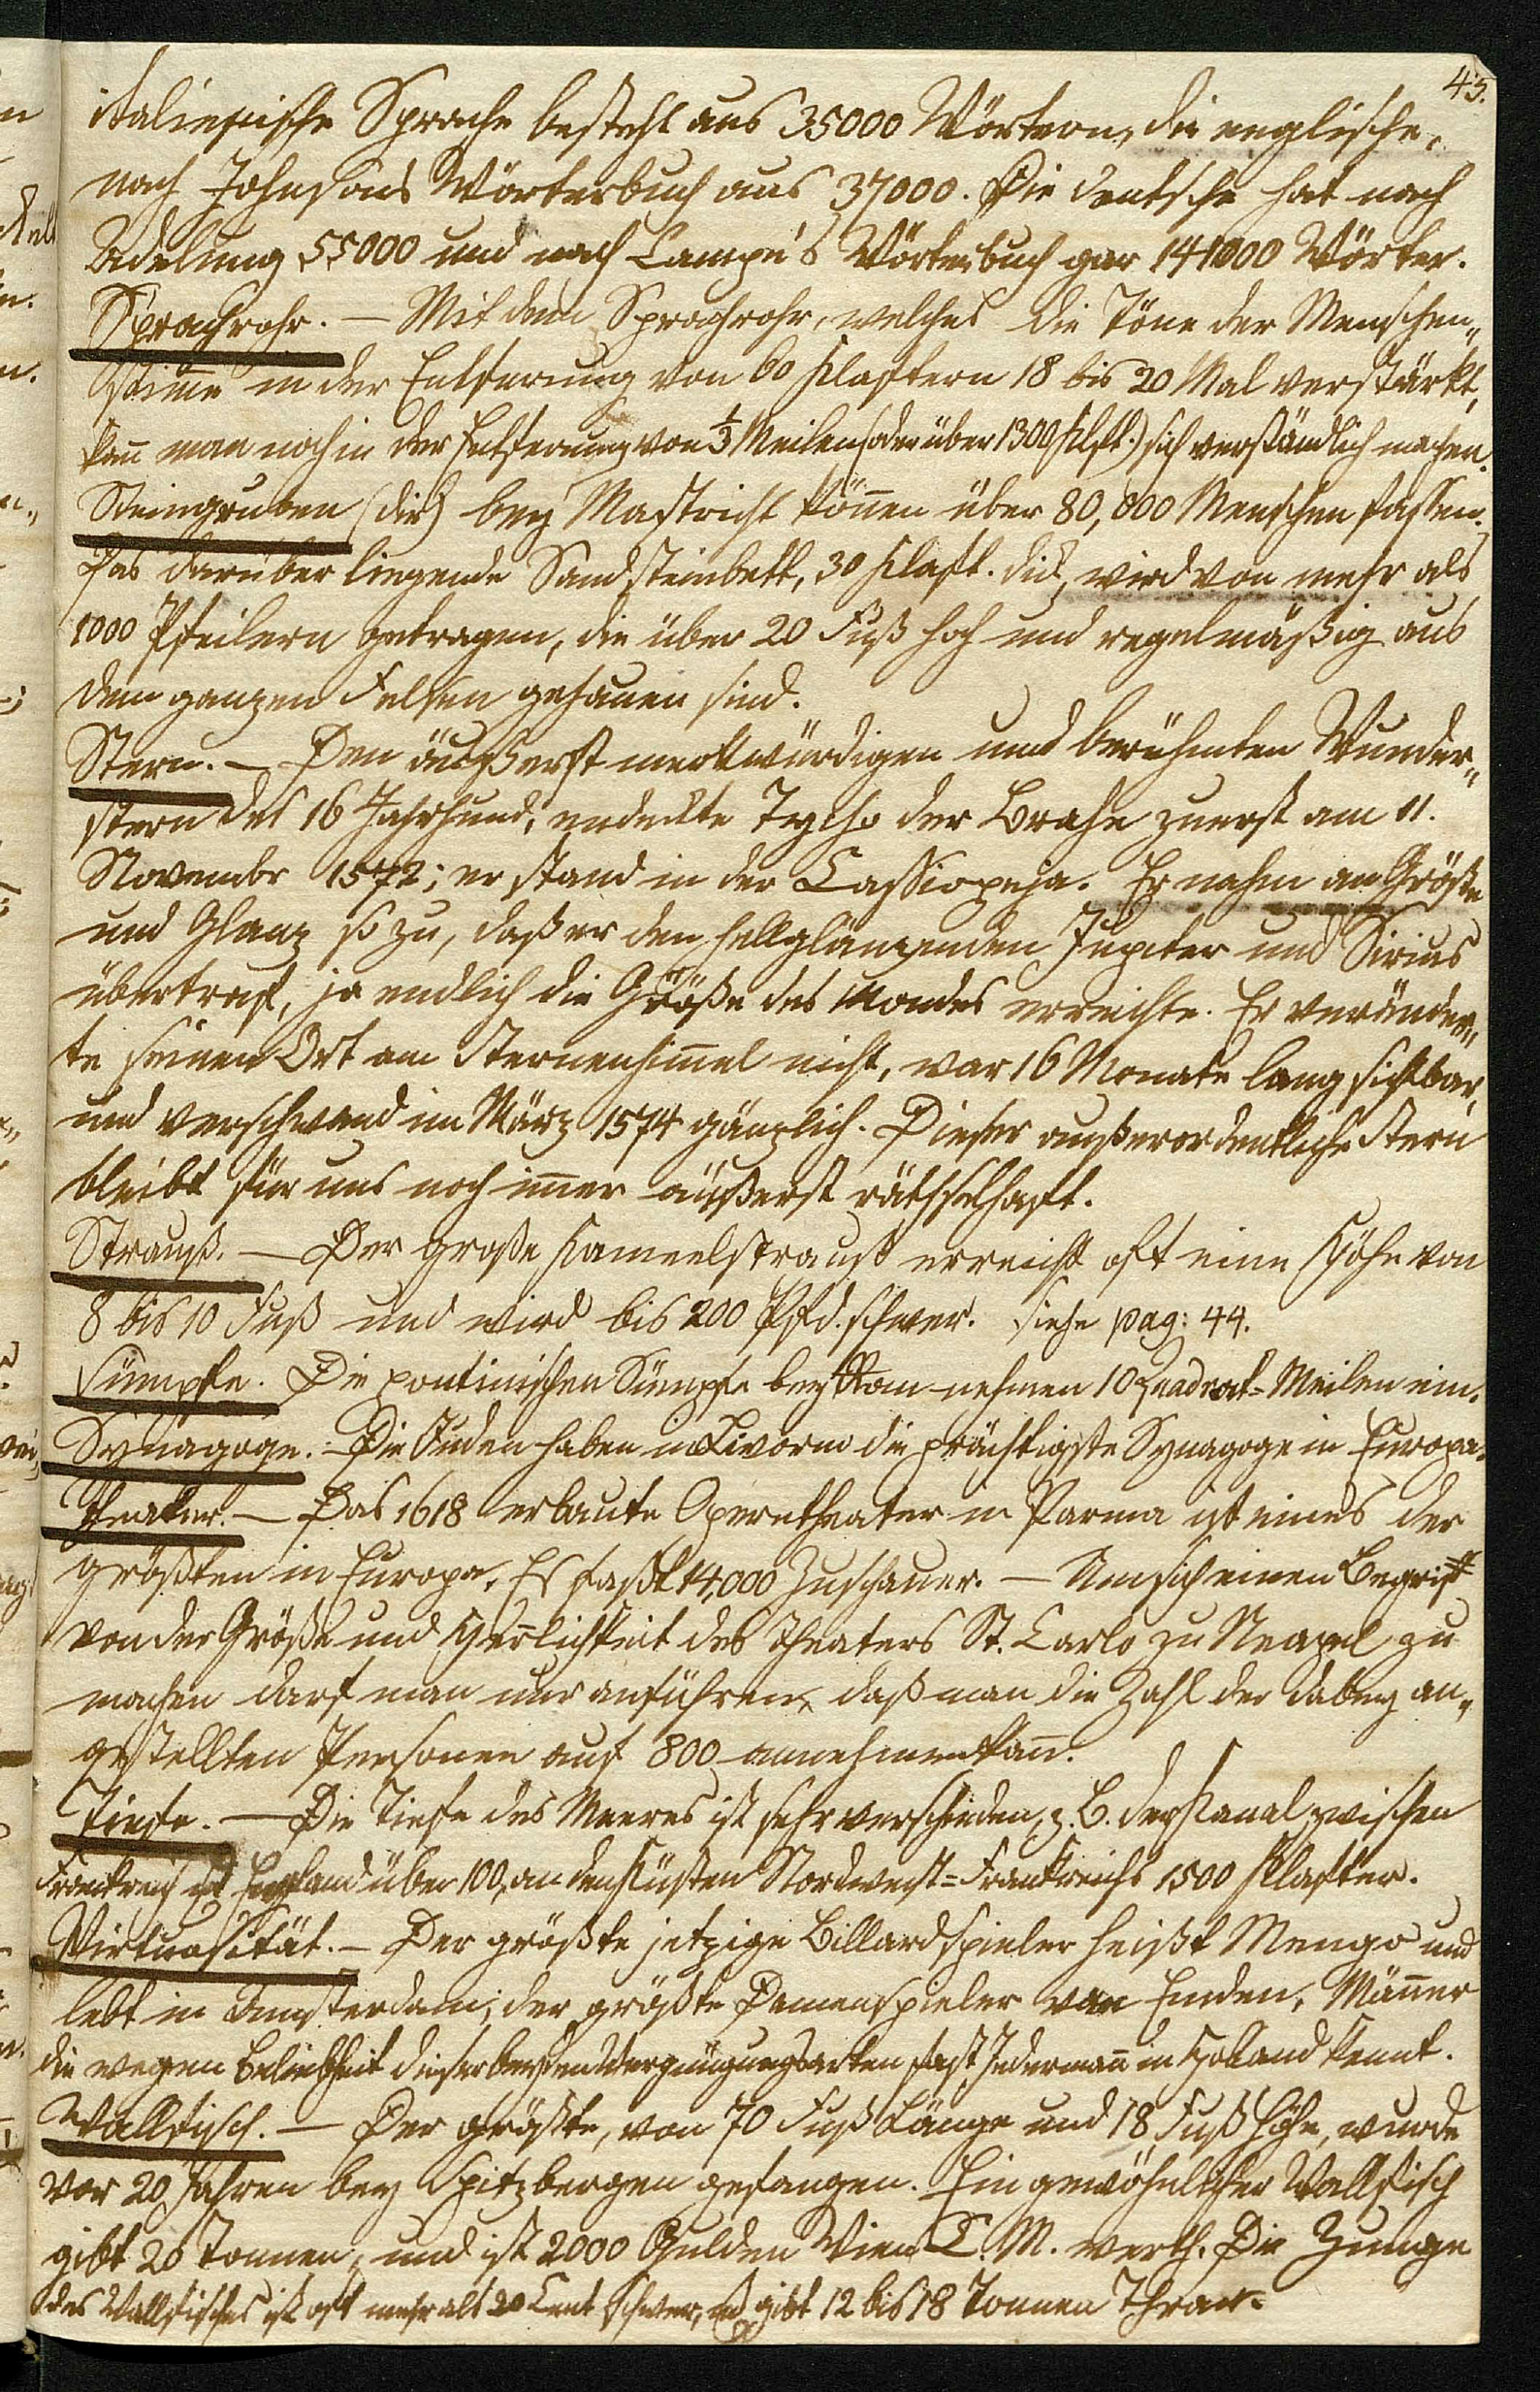 45.
italienische Sprache besteht aus 35000 Wörtern, die englische,
nach Johnsons Wörterbuch aus 37000. Die deutsche hat nach
Adelung 55000 und nach Campe's Wörterbuch gar 141000 Wörter.
Sprachrohr. — Mit dem Sprachrohr, welches die Töne der Menschen„
stim̅e in der Entfernung von 60 Klaftern 18 bis 20 Mal verstärkt,
kan̅ man noch in der Entfernung von ⅓ Meilen (oder über 1300 Klft.) sich verständlich machen.
Steingruben (die) bey Mastricht kön̅en über 80,000 Menschen fassen.
Das darüber liegende Sandsteinbett, 30 Klaft. dick, wird von mehr als
1000 Pfeilern getragen, die über 20 Fuß hoch und regelmäßig aus
dem ganzen Felsen gehauen sind.
Stern. — Den äußerst merkwürdigen und berühmten Wunder„
stern des 16 Jahrhund. endeckte Tycho der Brahe zuerst am 11.
Novembr 1572; er stand in der Cassiopeja. Er nahm an Größe
und Glanz so zu, daß er den hellglänzenden Jupiter und Sirius
übertraf, ja endlich die Größe des Mondes erreichte. Er veränder„
te seinen Ort am Sternenhim̅el nicht, war 16 Monate lang sichtbar,
und verschwand im März 1574 gänzlich. Dieser außerordentliche Stern
bleibt für uns noch im̅er äußerst räthselhaft.
Strauß. — Der große Kameelstrauß erreicht oft eine Höhe von
8 bis 10 Fuß und wird bis 200 Pfd. schwer. Siehe pag: 44.
Sümpfe. Die pontinischen Sümpfe bey Rom nehmen 10 Quadrat=Meilen ein.
Synagoge. — Die Juden haben in Livorno die prächtigste Synagoge in Europa.
Theater. — Das 1618 erbaute Operntheater in Parma ist eines der
größten in Europa. Es faßt 14,000 Zuschauer. — Um sich einen Begriff
von der Größe und Herrlichkeit des Theaters St. Carlo zu Neapel zu
machen darf man nur anführen, daß man die Zahl der dabey an„
gestellten Personen auf 800 annehmen kan̅.
Tiefe. — Die Tiefe des Meeres ist sehr verschieden, z. B. der Kanal zwischen
Frankreich England über 100, an den Küsten Nordwest=Frankreichs 1500 Klafter.
Virtuosität. — Der größte jetzige Billardspieler heißt Mengo und
lebt in Amsterdam; der größte Damenspieler van Emden, Män̅er
die wegen Beliebtheit dieser beyden Vergnügungsarten fast Jederman̅ in Holland kennt.
Wallfisch. — Der größte, von 70 Fuß Länge und 18 Fuß Höhe, wurde
vor 20 Jahren bey Spitzbergen gefangen. Ein gewöhnlicher Wallfisch
gibt 20 Tonnen, und ist 2000 Gulden Wien C. M. werth. Die Zunge
des Wallfisches ist oft mehr als 20 Cent schwer, gibt 12 bis 18 Tonnen Thran.